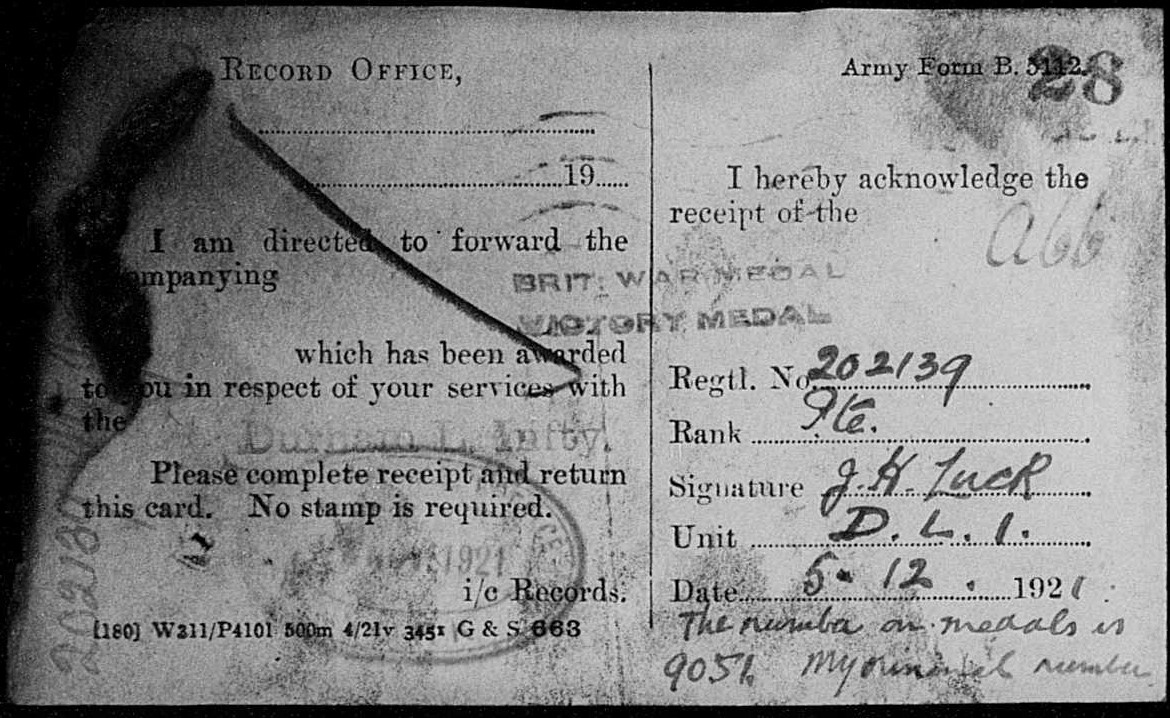 RECORD OFFICE,
19
I am directed to forward the
ompanying
BRIT: WAR MEDAL
VICTORY MEDAL
which has been awarded
to you in respect of your services with
the
Durham L. Infty.
Please complete receipt and return
this card. No stamp is required.
1921
i/c Records.
[180] W311/P4101 500m 4/21v 3451 G & S 663
20213
Army Form B. 5112.
28
I hereby acknowledge the
receipt of the
a66
Regtl. No. 202139
Rank Pte.
Signature J. H. Luck
Unit D. L. I.
Date 5. 12. 1921.
The number on medals is
9051. My original number